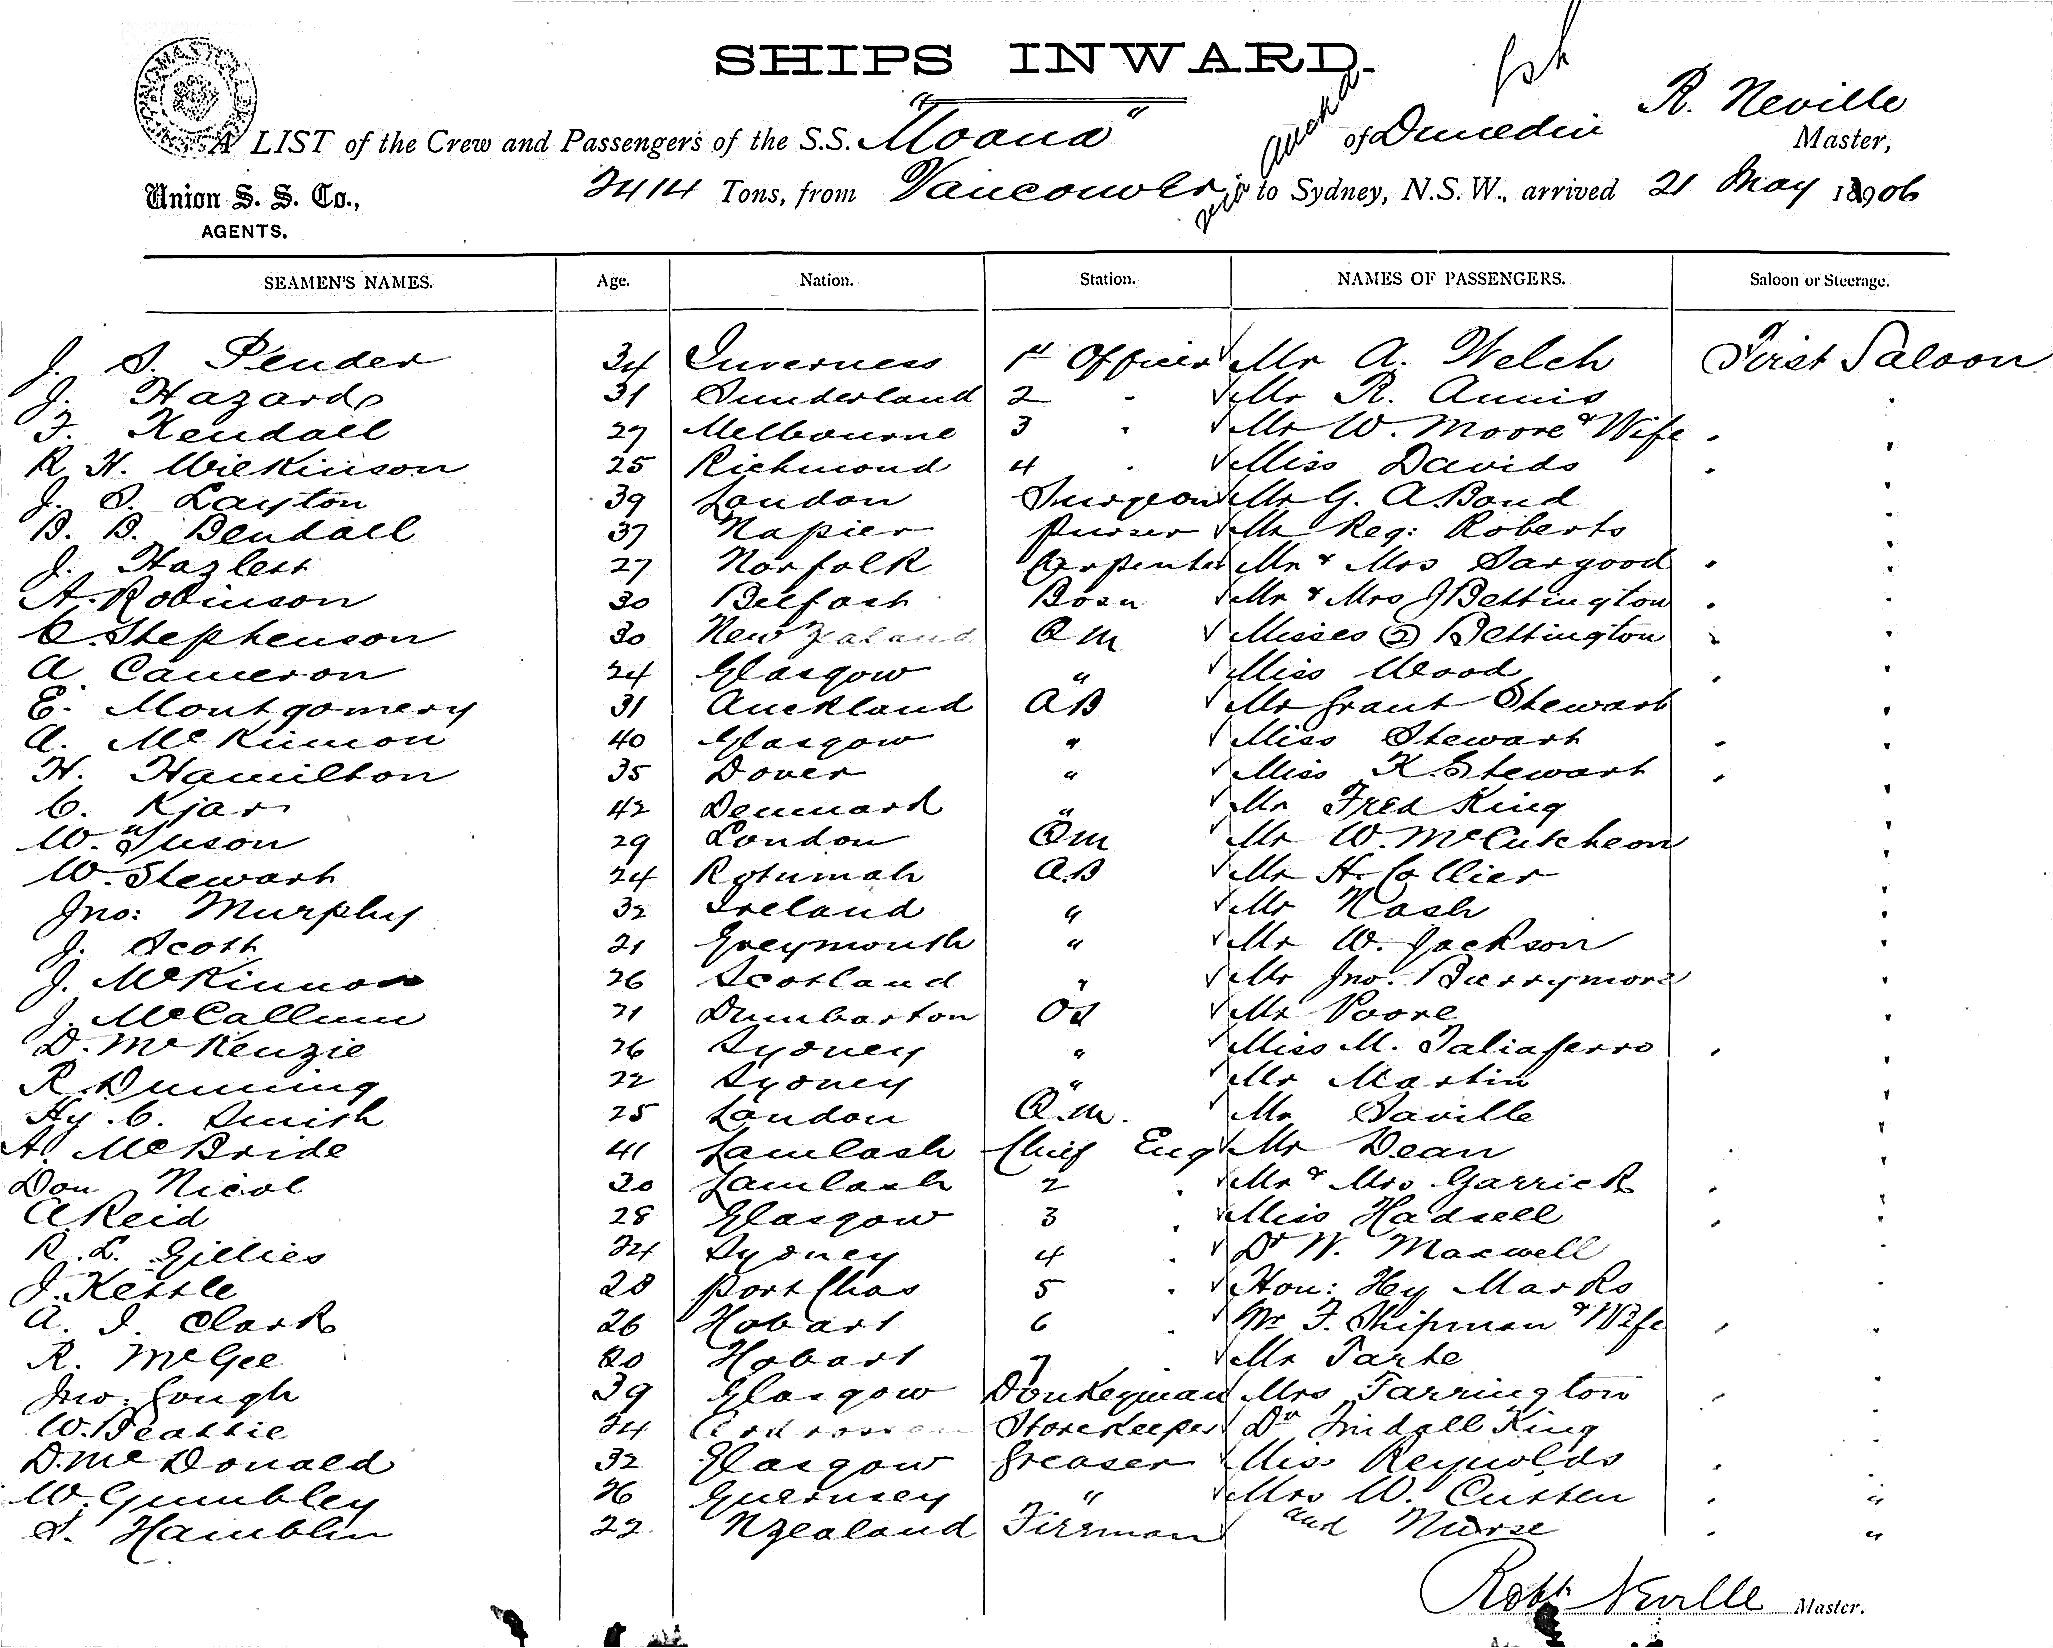 SHIPS INWARD.
A LIST of the Crew and Passengers of the S.S. "Moana" of Dunedin R. Neville Master,
Union S. S. Co., AGENTS.
2414 Tons, from Vancouver via Auckd to Sydney, N.S.W., arrived 21 May 1906
SEAMEN'S NAMES. Age. Nation. Station. NAMES OF PASSENGERS. Saloon or Steerage.
J. S. Pender 34 Inverness 1st Officer Mr A. Welch First Saloon
J. Hazard 31 Sunderland 2 " Mr R. Annis "
F. Kendall 27 Melbourne 3 " Mr W. Moore & Wife "
R. H. Wilkinson 25 Richmond 4 " Miss Davids "
J. S. Layton 39 London Surgeon Mr G. A. Bond "
B. B. Bendall 37 Napier Purser Mr Reg: Roberts "
J. Hazlett 27 Norfolk Carpenter Mr & Mrs Sargood "
A. Robinson 30 Belfast Bosn Mr & Mrs J Bettington "
C. Stephenson 30 New Zealand Q M Misses (2) Bettington "
A Cameron 24 Glasgow " Miss Wood "
E. Montgomery 31 Auckland AB Mr Grant Stewart "
A. McKinnon 40 Glasgow " Miss Stewart "
H. Hamilton 35 Dover " Miss K. Stewart "
C. Kjar 42 Denmark " Mr Fred King "
W. Tuson 29 London Qm Mr W. McCutcheon "
W. Stewart 24 Rotumah A.B Mr H. Collier "
Jno: Murphy 32 Ireland " Mr Nash "
J. Scott 21 Greymouth " Mr W. Jackson "
J. McKinnon 26 Scotland " Mr Jno. Barrymore "
J. McCallum 21 Dumbarton OS Mr Poore "
D. McKenzie 26 Sydney " Miss M. Taliaferro "
R Dunning 22 Sydney " Mr Martin "
Hy. C. Smith 25 London Q.M. Mr Saville "
A. McBride 41 Lamlash Chief Eng Mr Dean "
Don Nicol 30 Lamlash 2 " Mr & Mrs Garrick "
A Reid 28 Glasgow 3 " Miss Hadsell "
R. L. Gillies 24 Sydney 4 " Dr W. Maxwell "
J. Kettle 28 Port Chas 5 " Hon: Hy Marks "
A. I. Clark 26 Hobart 6 " Mr F. Shipman & Wife "
R. McGee 20 Hobart 7 " Mr Tarte "
Jno: Gough 39 Glasgow Donkeyman Mrs Farrington "
W. Beattie 24 Storekeeper Dr Tindall King "
D. McDonald 32 Glasgow Greaser Miss Reynolds "
W. Gumbley 26 Guernsey " Mrs W. Cutten "
Hamblin 22 NZealand Fireman and Nurse "
Robt Neville Master.